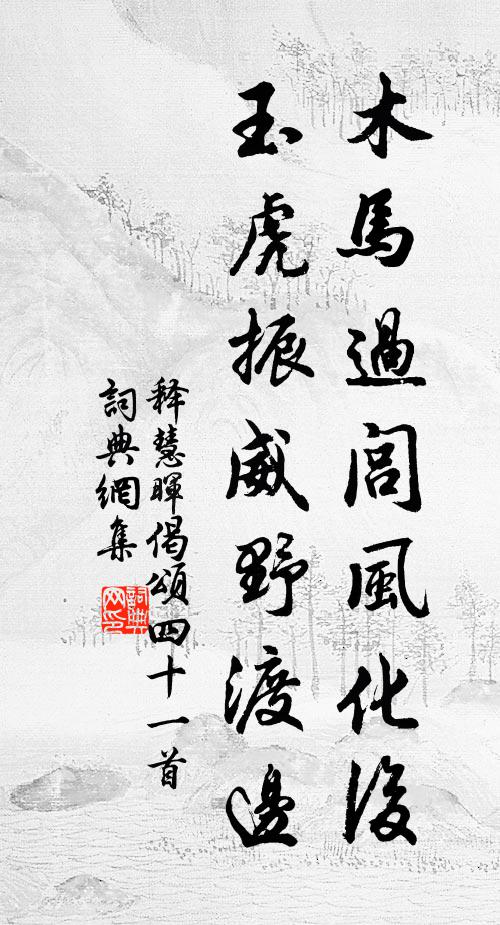 木馬過閻風化後
玉虎振威野渡邊
释慧暉偈頌四十一首
詞典網集
詞典
網印